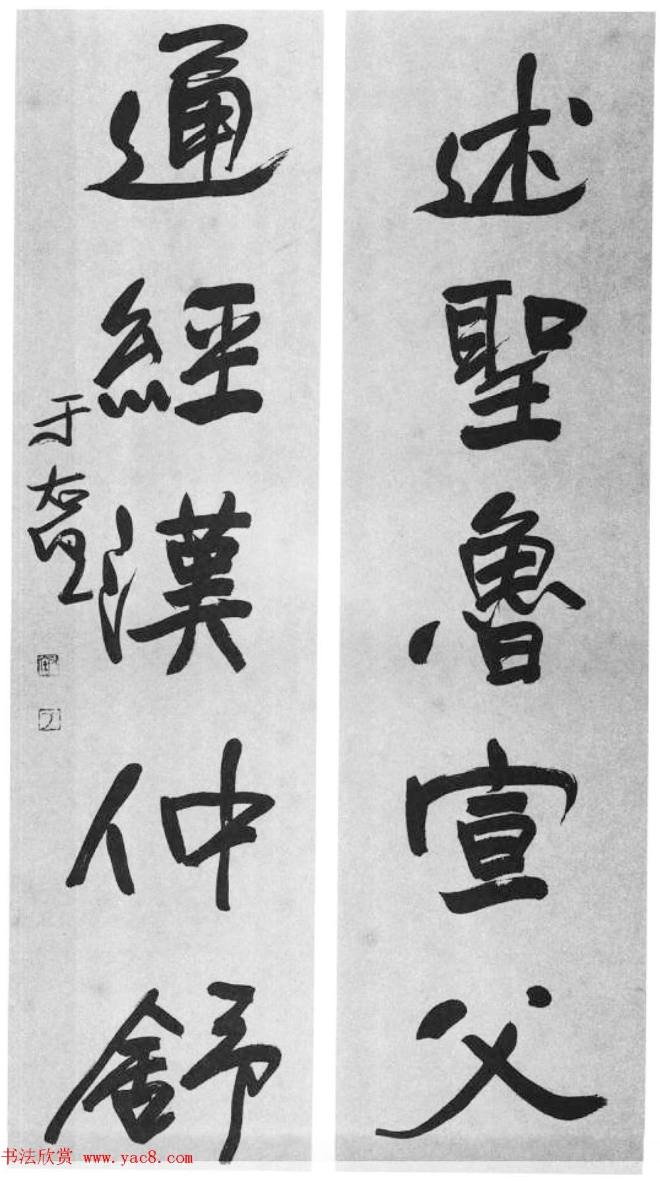 述聖魯宣父
通經漢仲舒
于右任
书法欣赏 www.yac8.com